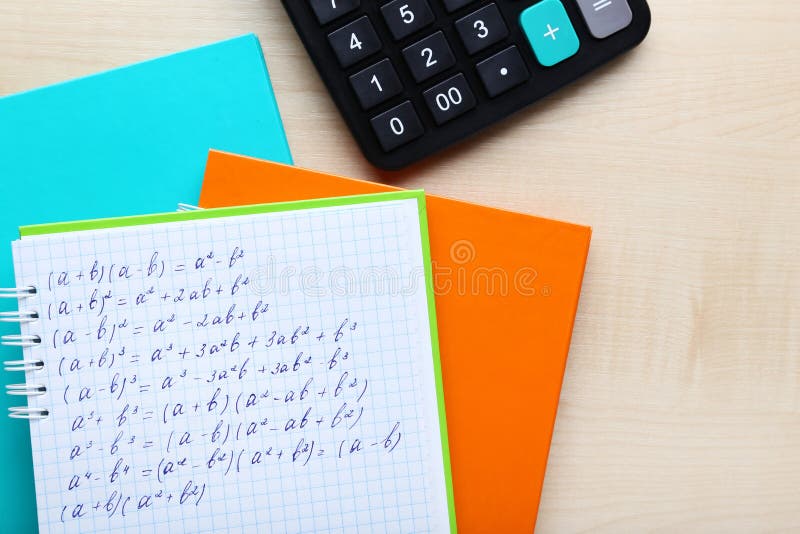 4 5 6
1 2 3 · + =
0 00
(a+b)(a-b) = a²-b²
(a+b)² = a²+2ab+b²
(a-b)² = a²-2ab+b²
(a+b)³ = a³+3a²b+3ab²+b³
(a-b)³ = a³-3a²b+3ab²-b³
a³+b³ = (a+b)(a²-ab+b²)
a³-b³ = (a-b)(a²-ab+b²)
a⁴-b⁴ = (a²-b²)(a²+b²) = (a-b)
(a+b)(a²+b²)
dreamstime